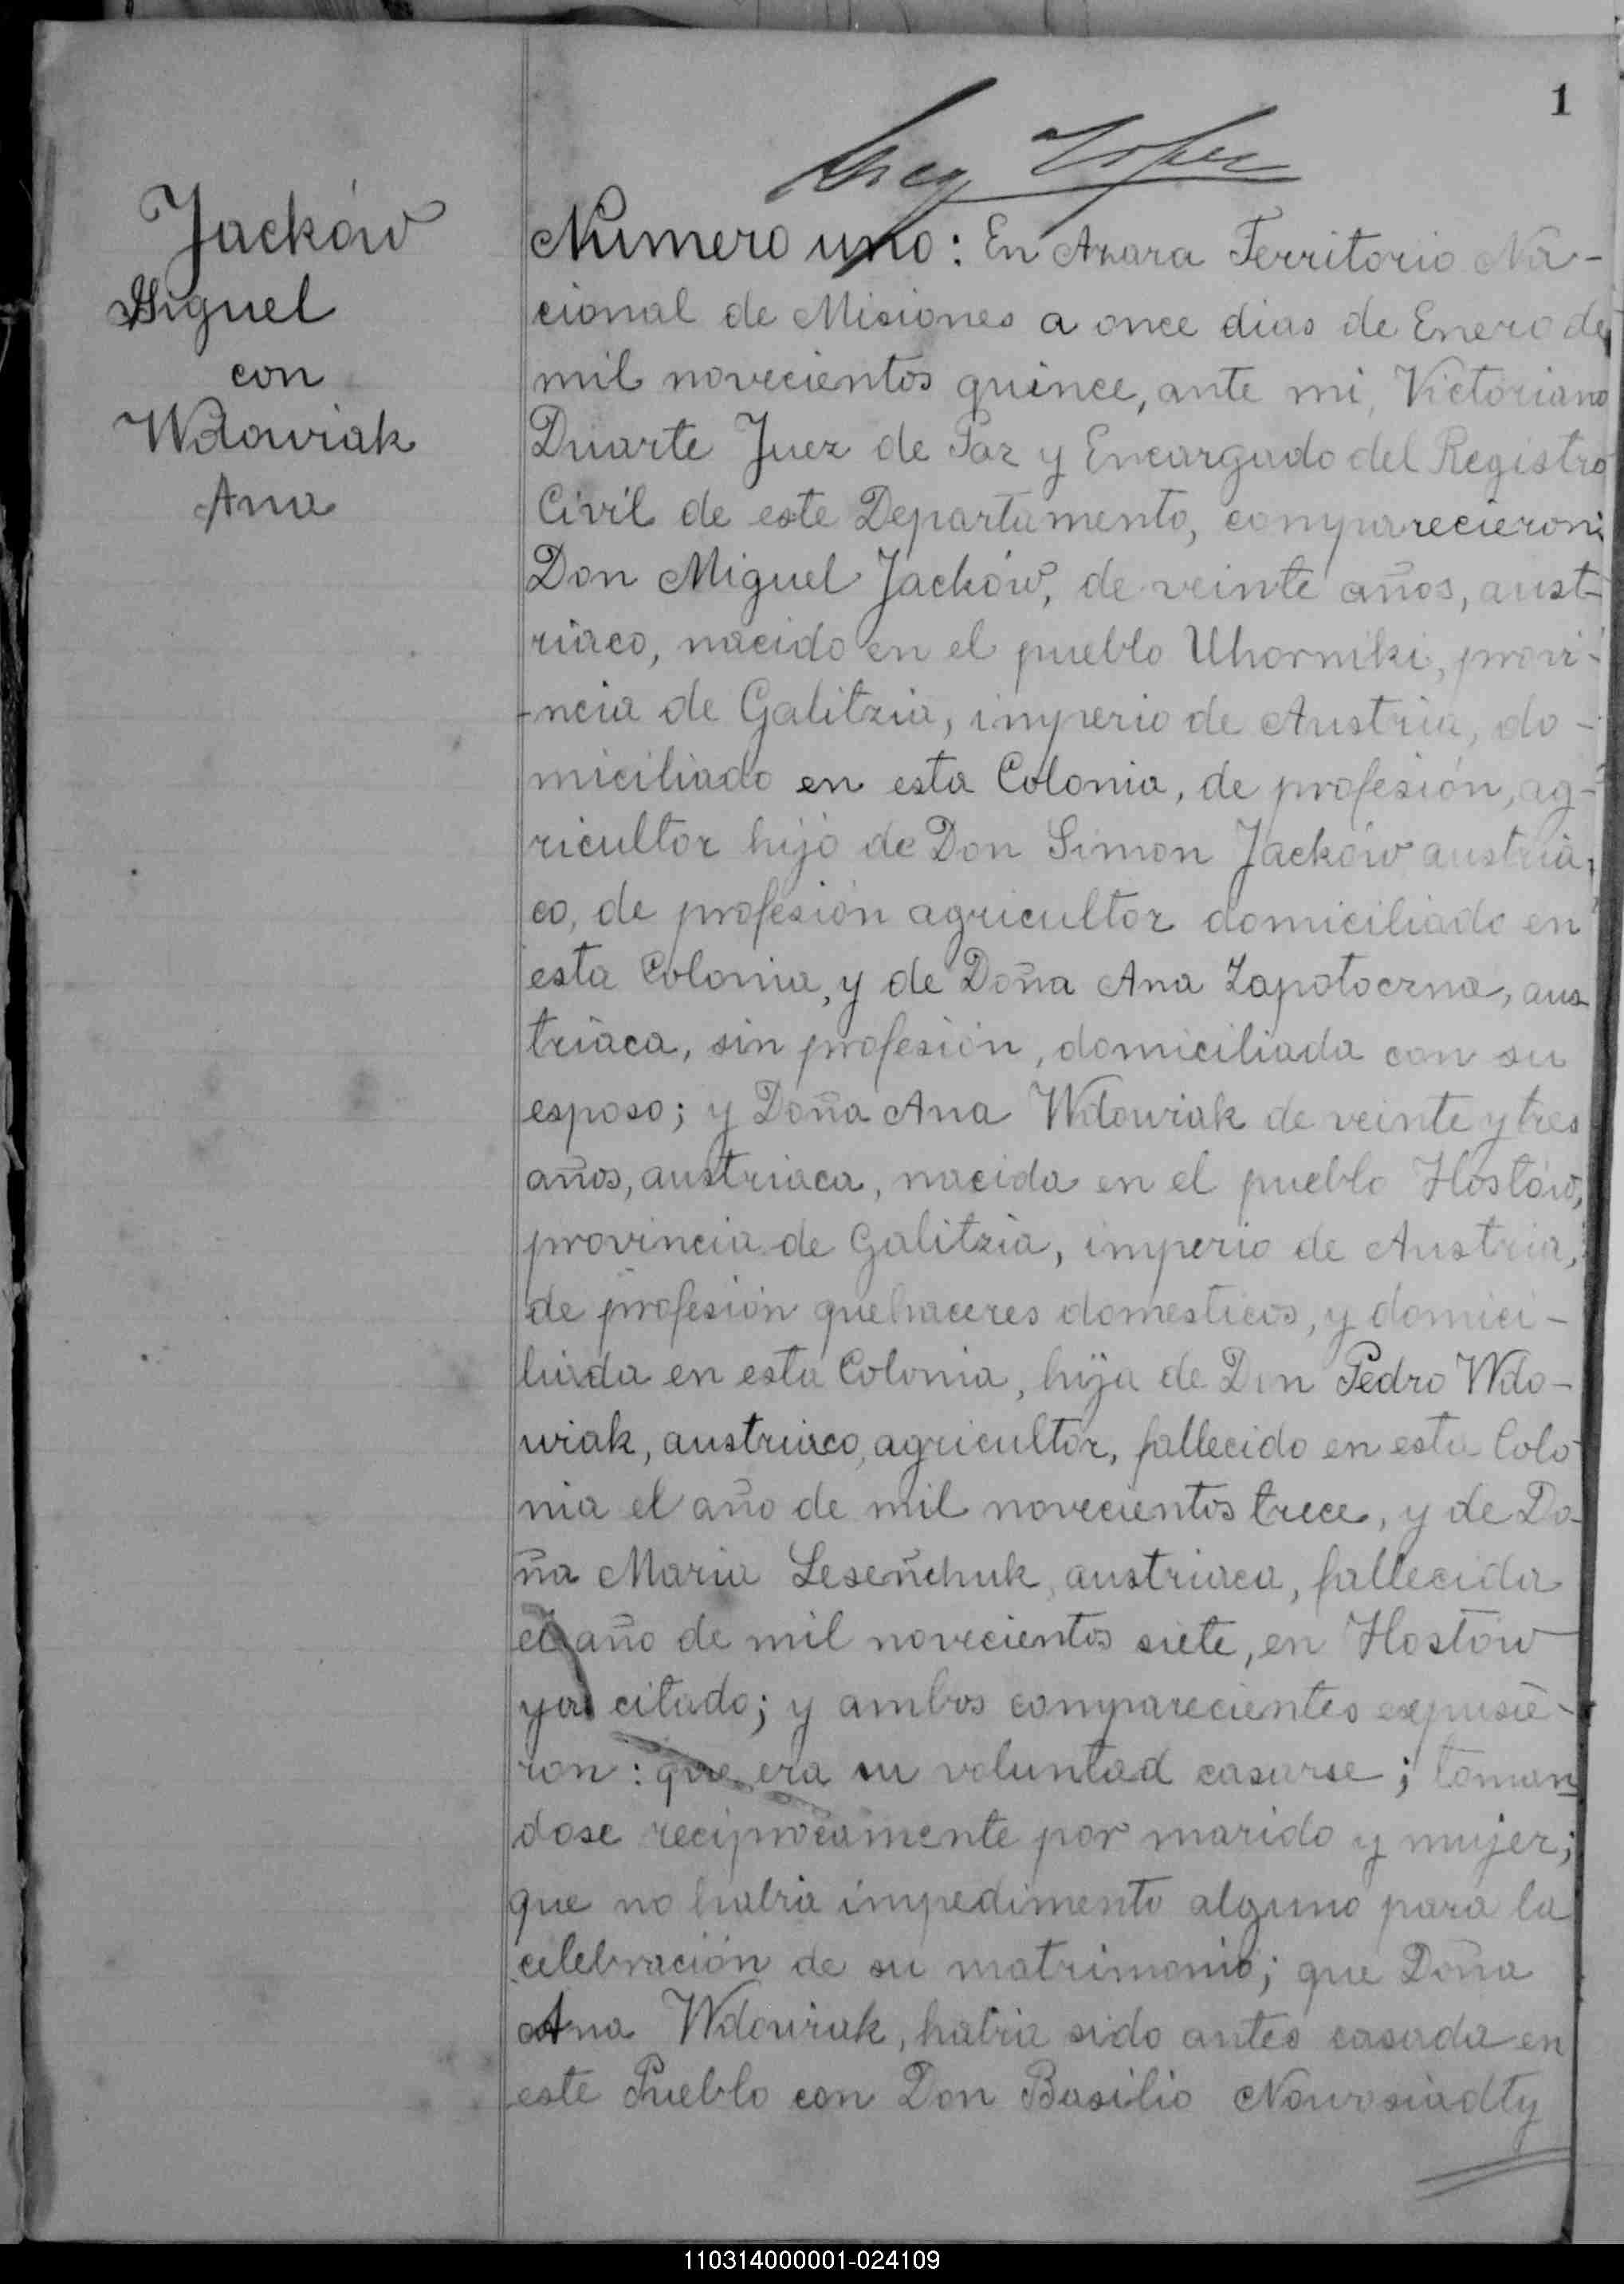 1
Jacków
Miguel
con
Wdowiak
Ana
Numero uno: En Azara Territorio Na-
cional de Misiones a once dias de Enero de
mil novecientos quince, ante mi, Victoriano
Duarte Juez de Paz y Encargado del Registro
Civil de este Departamento, comparecieron:
Don Miguel Jacków, de veinte años, aust-
riaco, nacido en el pueblo Uhorniki, provi-
-ncia de Galitzia, imperio de Austria, do-
miciliado en esta Colonia, de profesión, ag-
ricultor hijo de Don Simon Jacków austria,
co, de profesión agricultor domiciliado en
esta Colonia, y de Doña Ana Zapotoczna, aus
triaca, sin profesión, domiciliada con su
esposo; y Doña Ana Wdowiak de veinte y tres
años, austriaca, nacida en el pueblo Hostów,
provincia de Galitzia, imperio de Austria,
de profesión quehaceres domesticos, y domici-
liada en esta Colonia, hija de Don Pedro Wdo-
wiak, austriaco, agricultor, fallecido en esta Colo
nia el año de mil novecientos trece, y de Do-
ña Maria Leseñchuk, austriaca, fallecida
el año de mil novecientos siete, en Hostów
ya citado; y ambos comparecientes expusie-
ron: que era su voluntad casarse; toman
dose reciprocamente por marido y mujer;
que no habia impedimento alguno para la
celebración de su matrimonio; que Doña
Ana Wdowiak, habia sido antes casada en
este Pueblo con Don Basilio Nowosiadty
110314000001-024109